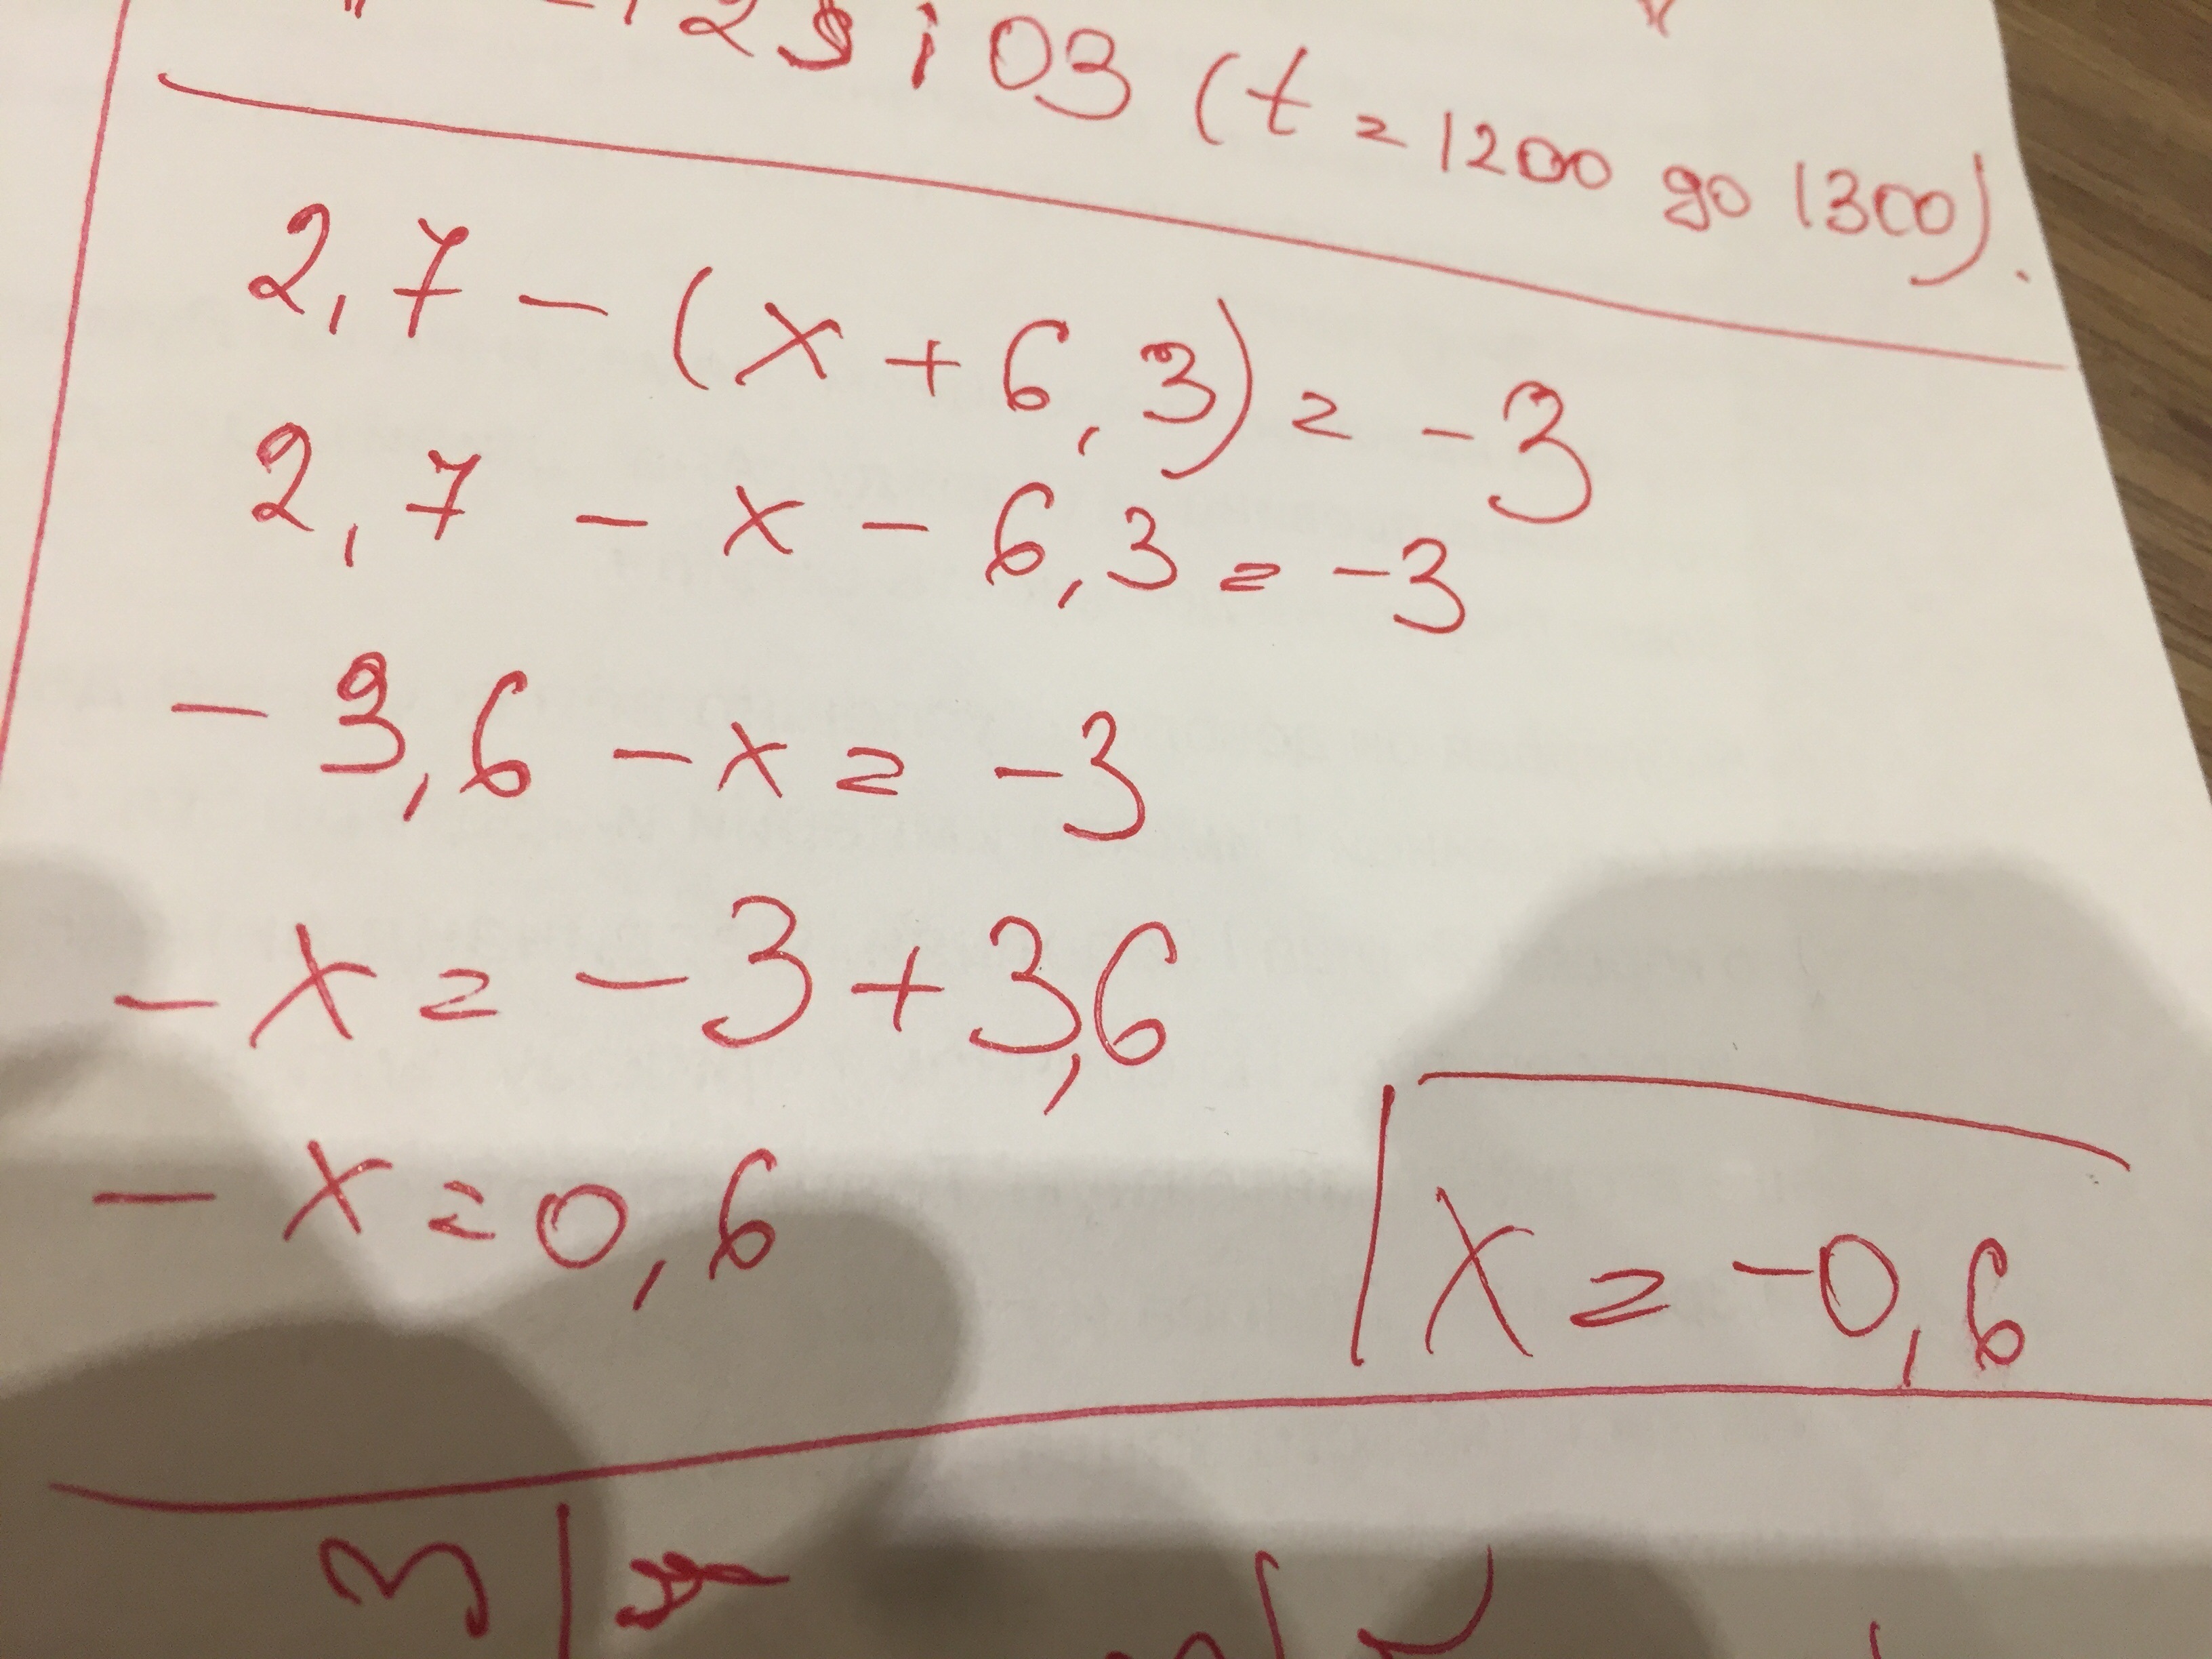 2SiO3 (t = 1200 до 1300).
2,7 - (x + 6,3) = -3
2,7 - x - 6,3 = -3
- 3,6 - x = -3
- x = - 3 + 3,6
- x = 0,6
x = -0,6